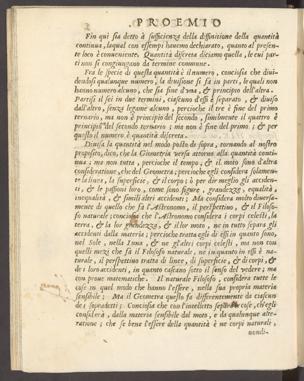 PROEMIO
Fin qui sia detto à sufficienza della diffinitione della quantità
continua, laqual con essempi hauemo dechiarato, quanto al presen-
te loco è conueniente. Quantità discreta diciamo quella, le cui par-
ti non si congiungono da termine commune.
Fra le specie di questa quantità è il numero, conciosia che diui-
dendosi qualunque numero, la diuisione si fà in parti, le quali non
hanno numero alcuno, che sia fine d'una, & principio dell'altra.
Partisi il sei in due termini, ciascuno d'essi è separato, & diuiso
dall'altro, senza legame alcuno, perciochè il tre è fine del primo
ternario, ma non è principio del secondo, similmente il quattro è
principio del secondo ternario; ma non è fine del primo; & per
questo il numero è quantità discreta.
Diuisa la quantità nel modo posto di sopra, tornando al nostro
proposito, dico, che la Geometria versa attorno alla quantità conti-
nua; ma non tutta, perciochè il tempo, & il moto sono d'altra
consideratione, che del Geometra, perciochè egli considera solamen-
te la linea, la superficie, & il corpo: & per dir meglio gli acciden-
ti, & le passioni loro, come sono figure, grandezze, equalità,
inequalità, & simili altri accidenti; Ma considera molto diuersa-
mente di quello che fà l'Astronomo, il perspettiuo, & il Filoso-
fo naturale; conciosia che l'Astronomo considera i corpi celesti, la
terra, & la lor grandezza, & il lor moto, ne in tutto separa gli
accidenti dalla materia; perciochè tratta egli di essi in quanto sono,
nel Sole, nella Luna, & ne gl'altri corpi celesti, ma non con
quelli mezi che fà il Filosofo naturale, ne in quanto in essi è na-
turale, il perspettiuo tratta di linee, di superficie, & di corpi, &
de i loro accidenti, in quanto caggiono sotto il senso del vedere; ma
con proue matematiche. Il naturale Filosofo, considera tutte le
cose in quel modo che hanno l'essere, nella sua propria materia
sensibile; Ma il Geometra questo fà differentemente da ciascuno
de i sopradetti; Conciosia che con l'intelletto separa le cose, che egli
considera, dalla materia sensibile dal moto, e da qualunque alte-
ratione; che se bene l'essere della quantità è ne corpi naturali,